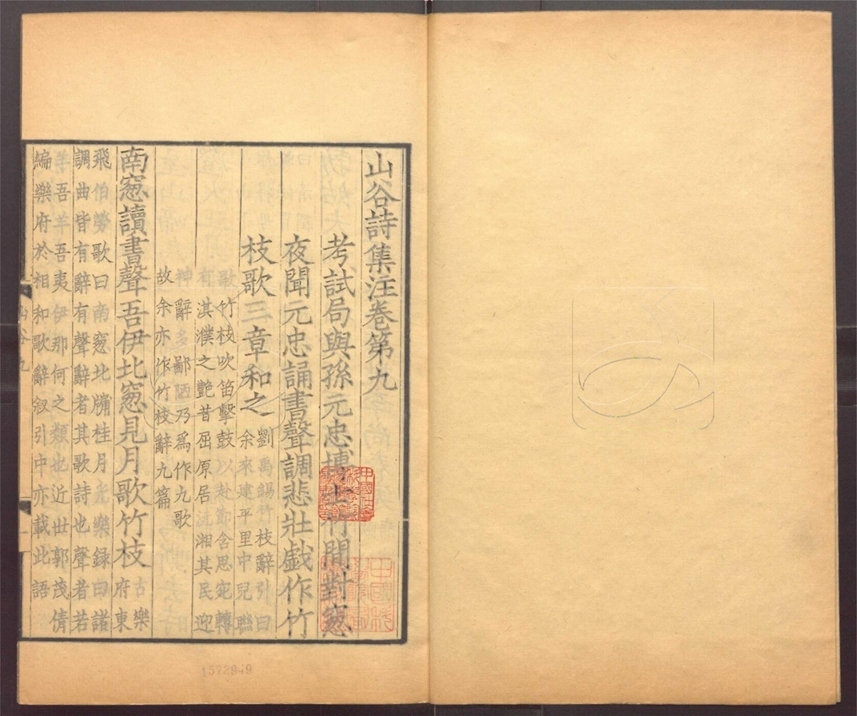 山谷詩集注卷第九
考試局與孫元忠博士竹間對窻
夜聞元忠誦書聲調悲壯戯作竹
枝歌三章和之
劉禹錫竹枝辭引曰
余來建平里中兒聯
歌竹枝吹笛擊鼓以赴節含思宛轉
有淇濮之艶昔屈原居沅湘其民迎
神辭多鄙陋乃爲作九歌
故余亦作竹枝辭九篇
南窻讀書聲吾伊北窻見月歌竹枝
古樂
府東
飛伯勞歌曰南窻北牖桂月光樂録曰諸
調曲皆有辭有聲辭者其歌詩也聲者若
羊吾羊吾夷伊那何之類也近世郭茂倩
編樂府於相和歌辭叙引中亦載此語
山谷九
一
1572949